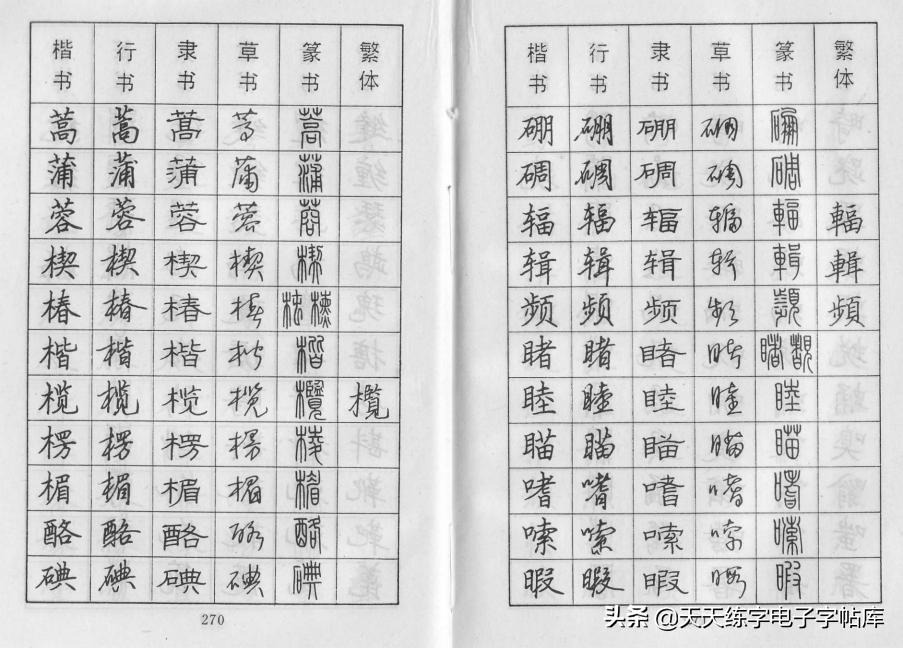 楷书 行书 隶书 草书 篆书 繁体
蒿 蒿 蒿 蒿 蒿
蒲 蒲 蒲 蒲 蒲
蓉 蓉 蓉 蓉 蓉
楔 楔 楔 楔 楔
椿 椿 椿 椿 椿
楷 楷 楷 楷 楷
榄 榄 榄 榄 欖 欖
楞 楞 楞 楞 楞
楣 楣 楣 楣 楣
酪 酪 酪 酪 酪
碘 碘 碘 碘 碘
270
楷书 行书 隶书 草书 篆书 繁体
硼 硼 硼 硼 硼
碉 碉 碉 碉 碉
辐 辐 辐 辐 輻 輻
辑 辑 辑 辑 輯 輯
频 频 频 频 頻 頻
睹 睹 睹 睹 睹 覩
睦 睦 睦 睦 睦
瞄 瞄 瞄 瞄 瞄
嗜 嗜 嗜 嗜 嗜
嗦 嗦 嗦 嗦 嗦
暇 暇 暇 暇 暇
头条 @天天练字电子字帖库